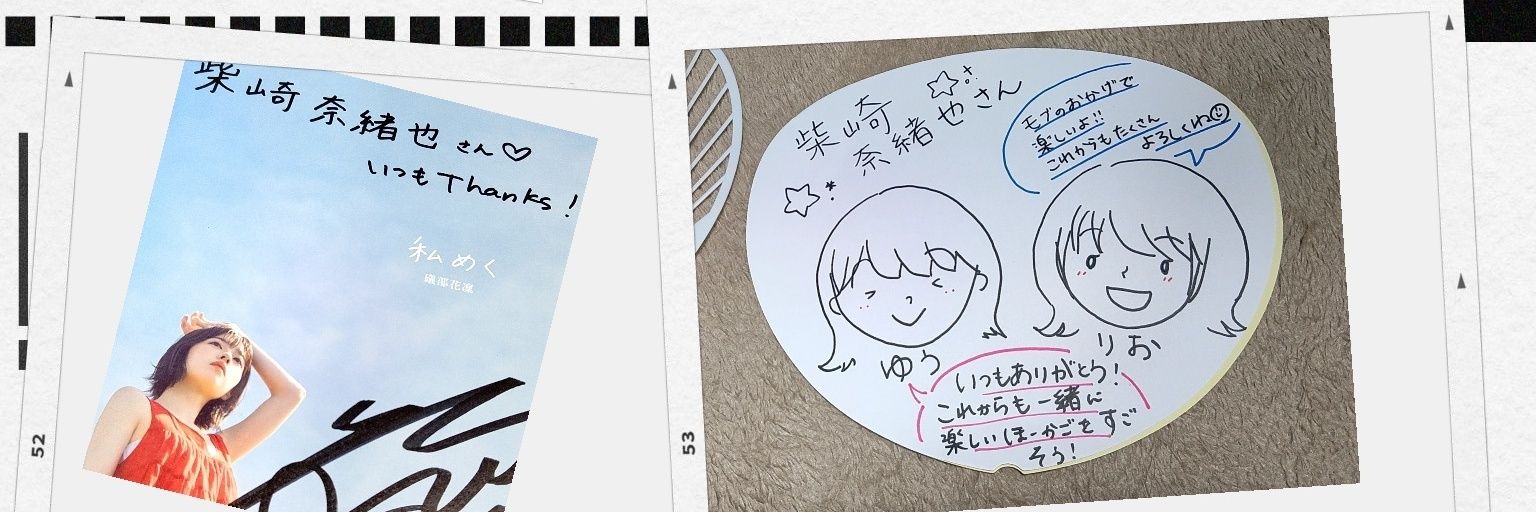 柴崎 奈緒也 さん♡
いつもThanks!
私めく
磯部花凜
52
柴崎
奈緒也さん
モブのおかげで
楽しいよ!!
これからもたくさん
よろしくね
ゆう
りお
いつもありがとう!
これからも一緒に
楽しいほーかごをすご
そう!
53